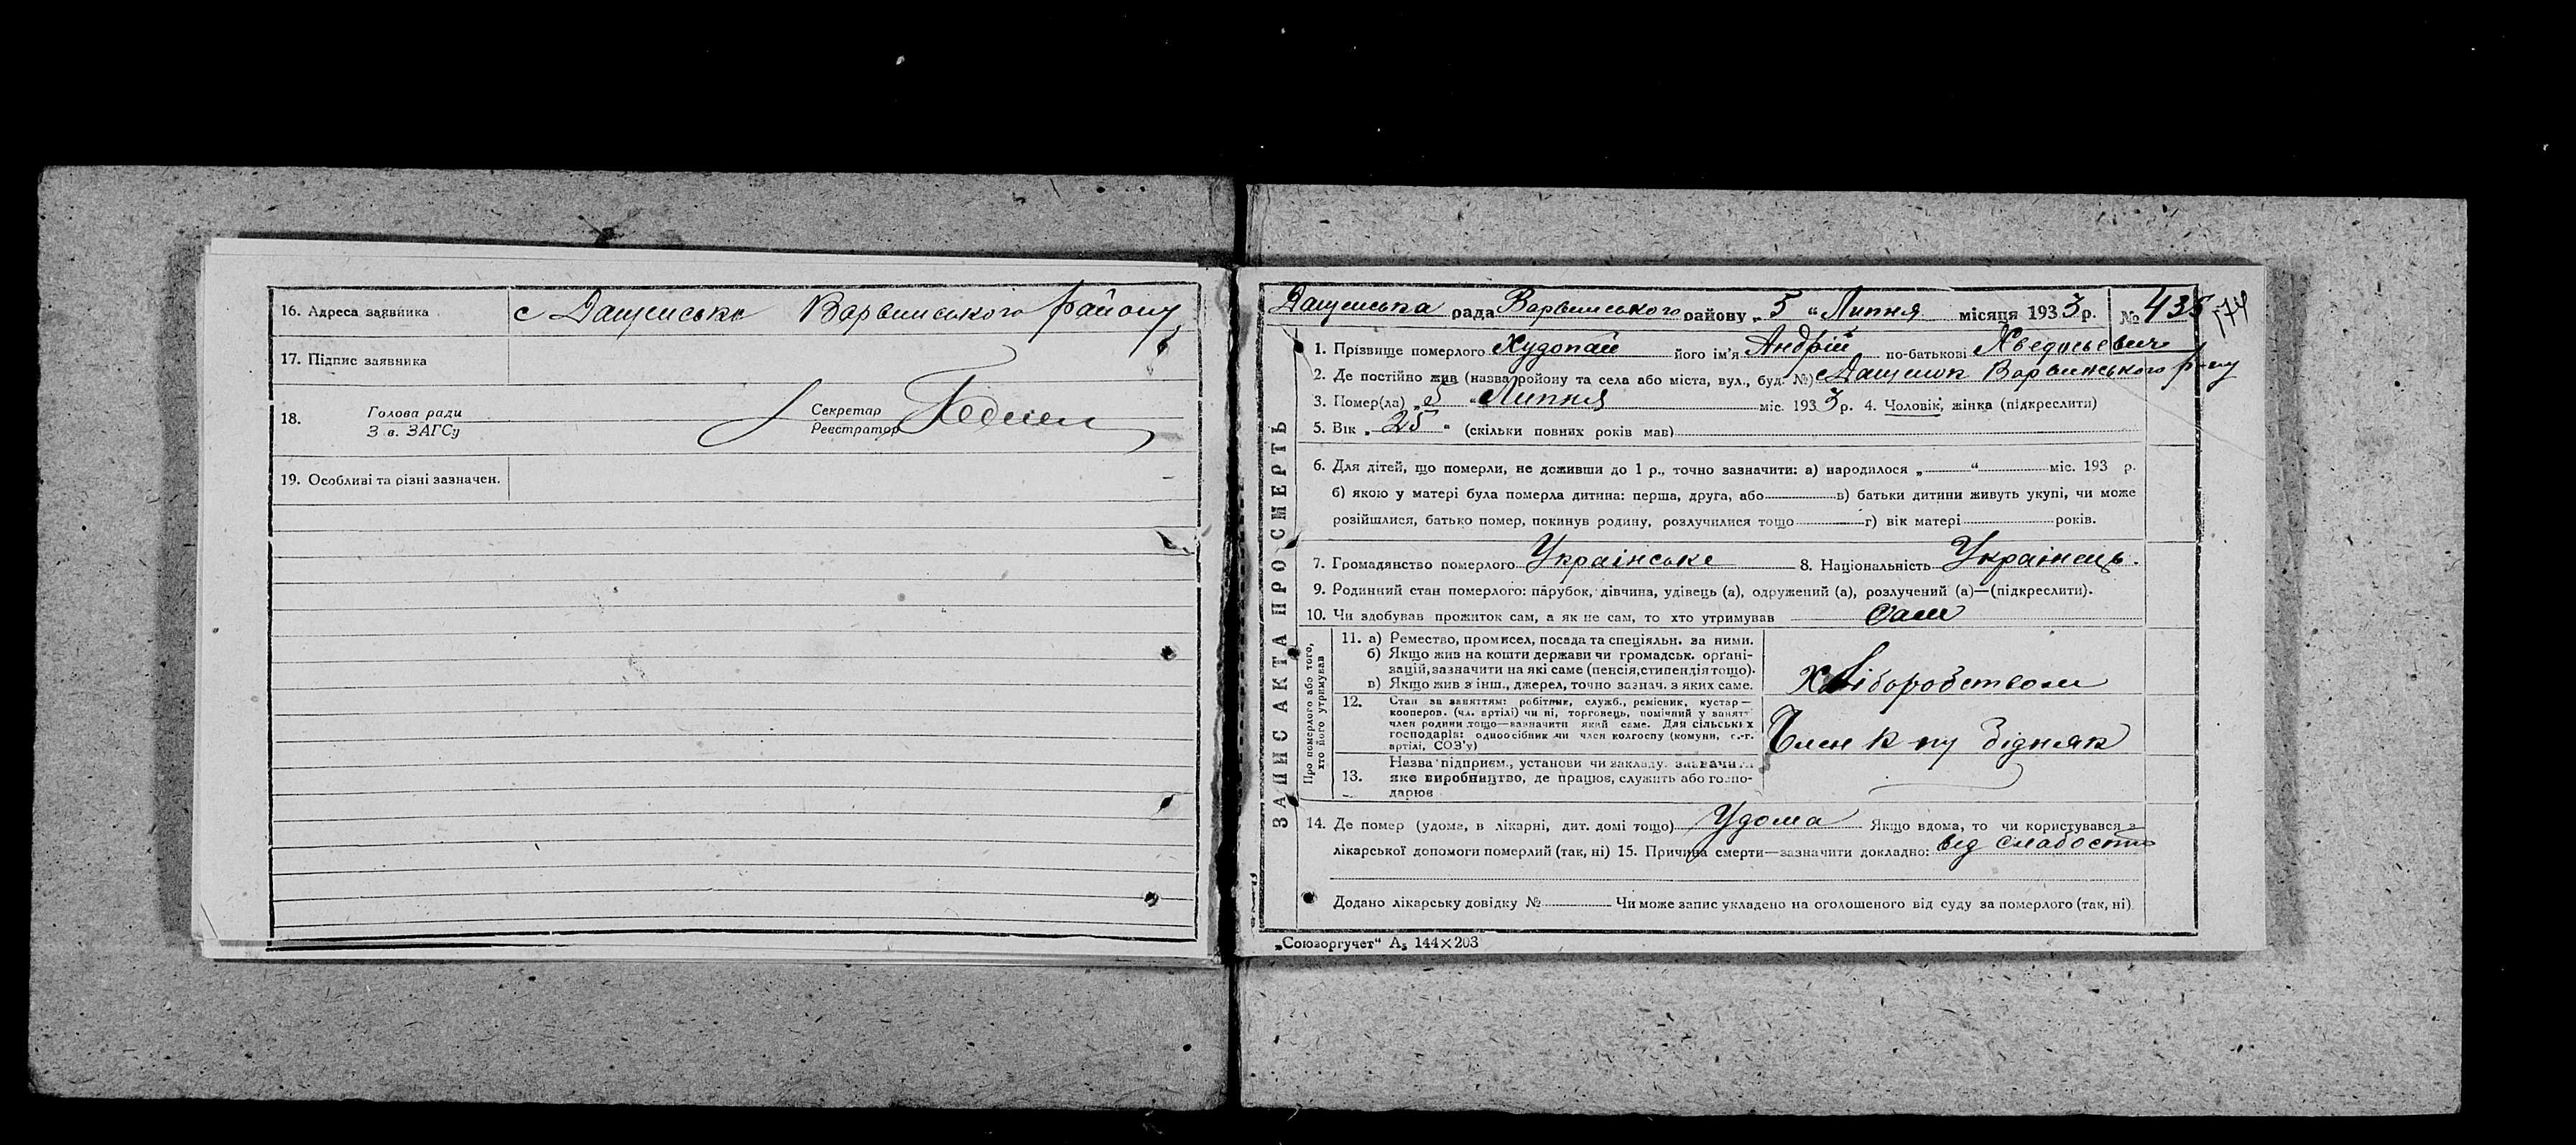 16. Адреса заявника с Дащенськи Варвинського району
17. Підпис заявника
18. Голова ради
З в. ЗАГСу
Секретар
Реєстратор
19. Особливі та різні зазначен.
ЗАПИС АКТА ПРО СМЕРТЬ
Дащенська рада Варвинського району „5“ Липня місяця 1933 р. №
174
1. Прізвище померлого Худопай його ім'я Андрій по-батькові
2. Де постійно жив (назва району та села або міста, вул., буд. №) с Дащенок Варвинського р-ну
3. Помер(ла) „5“ Липня міс. 1933 р. 4. Чоловік, жінка (підкреслити)
5. Вік „25“ (скільки повних років мав)
6. Для дітей, що померли, не доживши до 1 р., точно зазначити: а) народилося „ “ міс. 193 р.
б) якою у матері була померла дитина: перша, друга, або в) батьки дитини живуть укупі, чи може
розійшлися, батько помер, покинув родину, розлучилися тощо г) вік матері років.
7. Громадянство померлого Українське 8. Національність Українець.
9. Родинний стан померлого: парубок, дівчина, удівець (а), одружений (а), розлучений (а)—(підкреслити).
10. Чи здобував прожиток сам, а як не сам, то хто утримував Сам
Про померлого або того,
хто його утримував
11. а) Ремество, промисел, посада та спеціяльн. за ними.
б) Якщо жив на кошти держави чи громадськ. органі-
зацій, зазначити на які саме (пенсія, стипендія тощо).
в) Якщо жив з інш., джерел, точно зазнач. з яких саме.
Хліборобством
12. Стан за заняттям: робітник, служб., ремісник, кустар—
кооперов. (чл. артілі) чи ні, торговець, помічний у занятт
член родини тощо—вазначити який саме. Для сільських
господарів: одноосібник чи член колгоспу (комуни, с.-г.
артілі, СОЗ'у)
Член к пу бідняк
13. Назва підприєм., установи чи закладу. зазначити
яке виробництво, де працює, служить або госпо-
дарює
14. Де помер (удома, в лікарні, дит. домі тощо) Удома Якщо вдома, то чи користувався з
лікарської допомоги померлий (так, ні) 15. Причина смерти—зазначити докладно: від слабости
Додано лікарську довідку № Чи може запис укладено на оголошеного від суду за померлого (так, ні)
„Союзоргучет“ А₅ 144×203